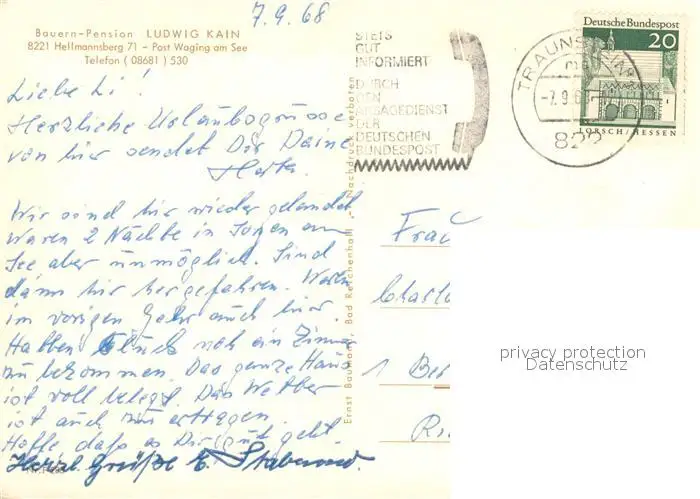 7.9.68
Bauern-Pension LUDWIG KAIN
8221 Hellmannsberg 71 – Post Waging am See
Telefon (08681) 530
Liebe Li!
Herzliche Urlaubsgrüsse
von hier sendet Dir Deine
Herta.
Wir sind hier wieder gelandet
waren 2 Nächte in am
See aber unmöglich. Sind
dann hier hergefahren. Waren
im vorigen Jahr auch hier.
Hatten Glück noch ein Zimmer
zu bekommen. Das ganze Haus
ist voll belegt. Das Wetter
ist auch zu ertragen.
Hoffe daß es Dir gut geht.
Herzl. Grüße
STETS
GUT
INFORMIERT
DURCH
DEN
ANSAGEDIENST
DER
DEUTSCHEN
BUNDESPOST
TRAUNSTEIN
-7.9.68
822
Deutsche Bundespost
20
LORSCH/HESSEN
Ernst Baumann, Bad Reichenhall - Nachdruck verboten
Frau
Charlo
1 Be
privacy protection
Datenschutz